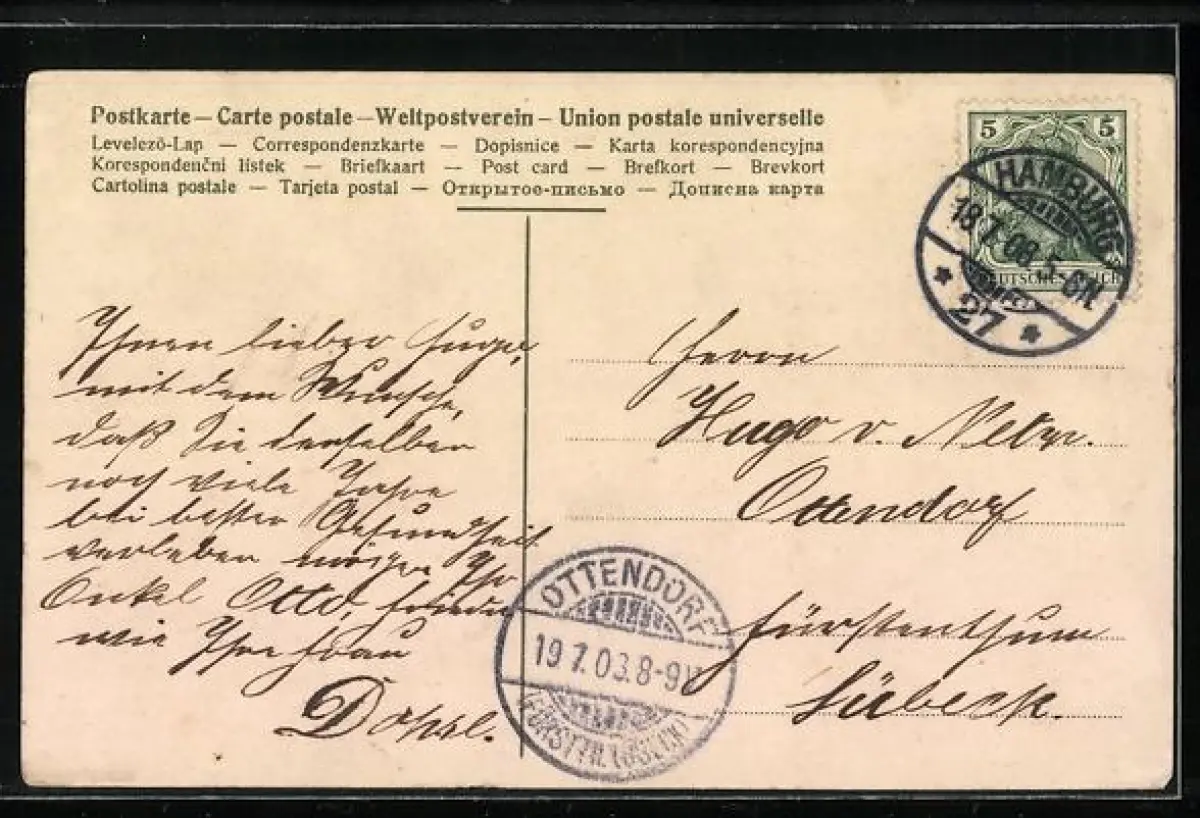 Postkarte — Carte postale — Weltpostverein — Union postale universelle
Levelező-Lap — Correspondenzkarte — Dopisnice — Karta korespondencyjna
Korespondenční listek — Briefkaart — Post card — Brefkort — Brevkort
Cartolina postale — Tarjeta postal — Открытое-письмо — Дописна карта
5 5
DEUTSCHES REICH
HAMBURG
18 7. 08. 5-6 N.
* 27 *
Ihnen lieber Hugo,
mit dem Wunsche,
daß Sie denselben
noch viele Jahre
bei bester Gesundheit
verleben mögen Ihr
Onkel Otto,
wie Ihre Frau
Herrn
Hugo v.
Ottendorf
Fürstenthum
Lübeck.
OTTENDORF
19 7. 03. 8-9 V.
(FÜRSTTH. LÜBECK)